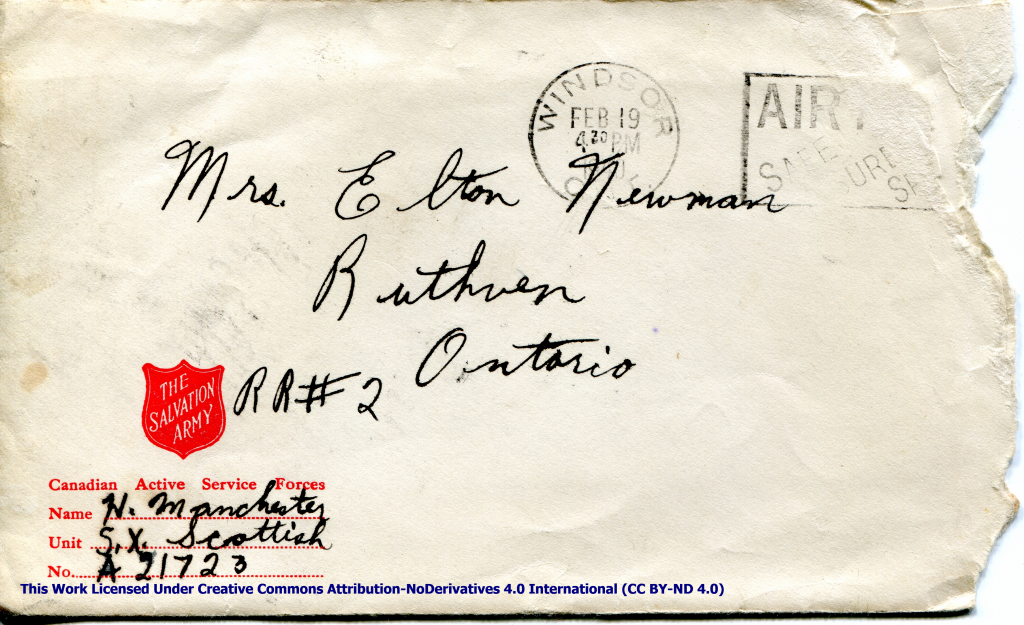 WINDSOR
FEB 19
4 30 PM
AIR
SAFE
Mrs. Elton Newman
Ruthven
Ontario
RR# 2
THE
SALVATION
ARMY
Canadian Active Service Forces
Name H. Manchester
Unit S.X. Scottish
No. A 21723
This Work Licensed Under Creative Commons Attribution-NoDerivatives 4.0 International (CC BY-ND 4.0)